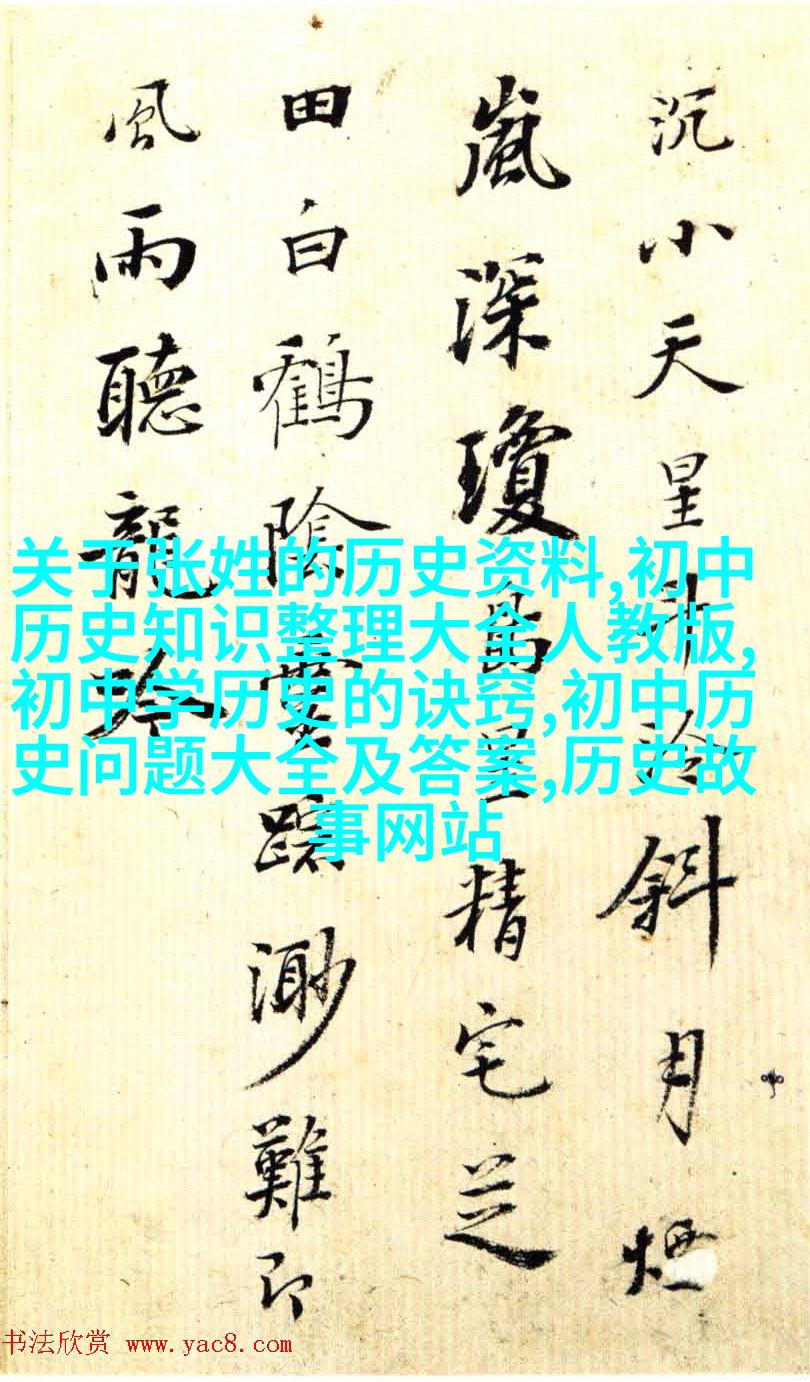 沉小天星斜月煙
嵐深瓊島精宅芝
田白鶴陰靈蹤渺難即
風雨聽龍吟
关于张姓的历史资料,初中
历史知识整理大全人教版,
初中学历史的诀窍,初中历
史问题大全及答案,历史故
事网站
书法欣赏 www.yac8.com